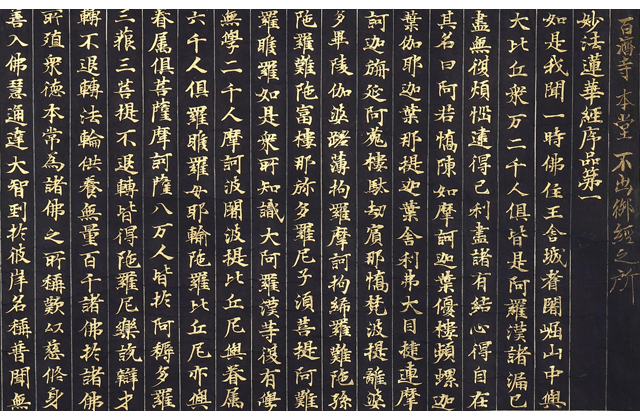 百濟寺 本堂 不出御經之所
妙法蓮華經序品第一
如是我聞一時佛住王舍城耆闍崛山中與
大比丘衆万二千人俱皆是阿羅漢諸漏已
盡無復煩惱逮得己利盡諸有結心得自在
其名曰阿若憍陳如摩訶迦葉優樓頻螺迦
葉伽耶迦葉那提迦葉舍利弗大目揵連摩
訶迦旃延阿㝹樓馱劫賓那憍梵波提離婆
多畢陵伽婆蹉薄拘羅摩訶拘絺羅難陁孫
陁羅難陁富樓那弥多羅尼子須菩提阿難
羅睺羅如是衆所知識大阿羅漢等復有學
無學二千人摩訶波闍波提比丘尼與眷属
六千人俱羅睺羅母耶輸陁羅比丘尼亦與
眷属俱菩薩摩訶薩八万人皆於阿耨多羅
三藐三菩提不退轉皆得陁羅尼樂說辯才
轉不退轉法輪供養無量百千諸佛於諸佛
所殖衆德本常為諸佛之所稱歎以慈脩身
善入佛慧通達大智到於彼岸名稱普聞無